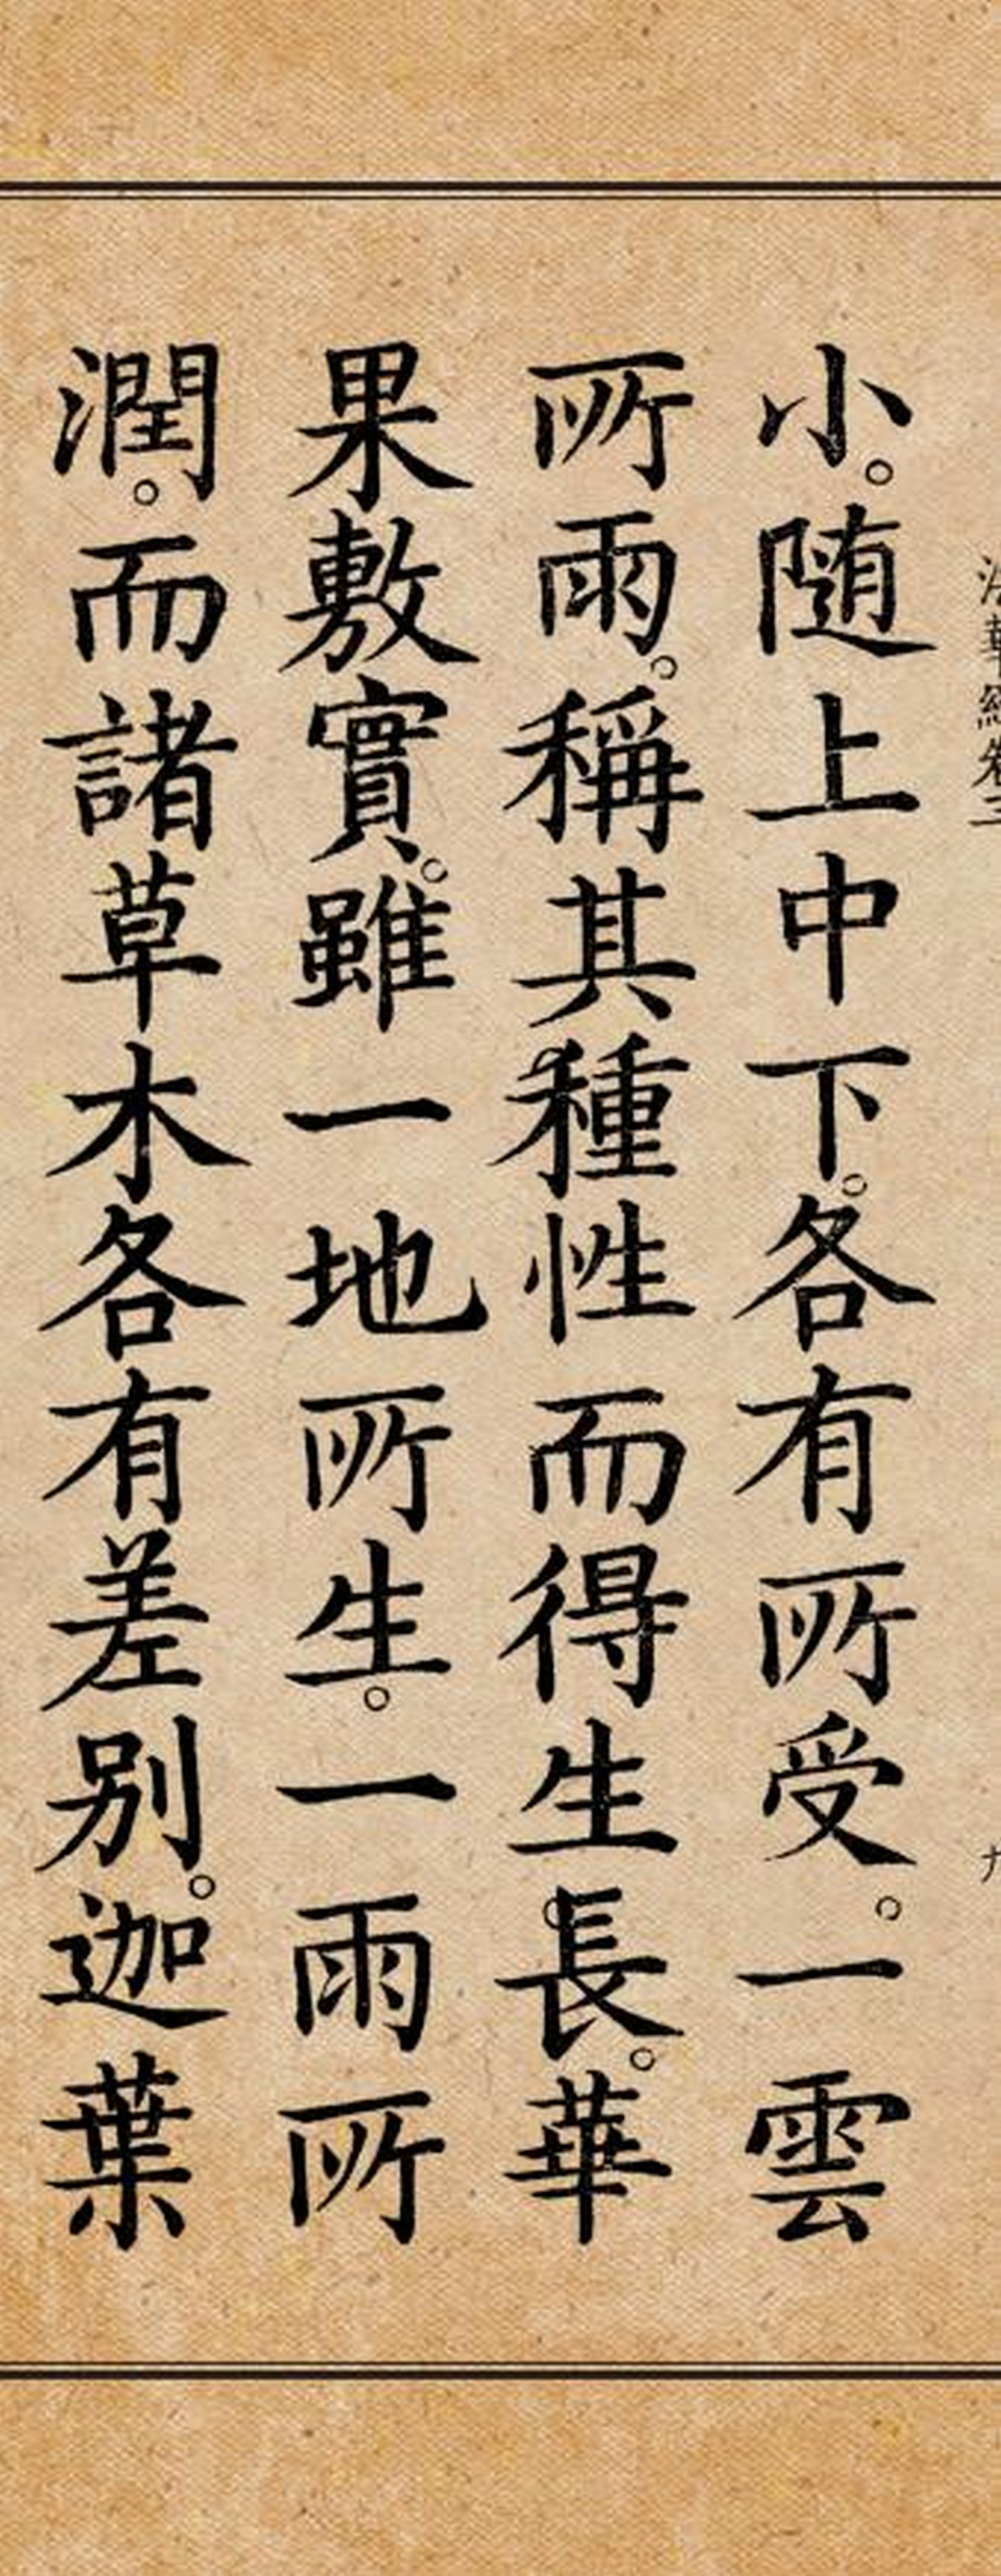 法華經卷三
九
小。随上中下。各有所受。一雲
所雨。稱其種性而得生長。華
果敷實。雖一地所生。一雨所
潤。而諸草木各有差别。迦葉